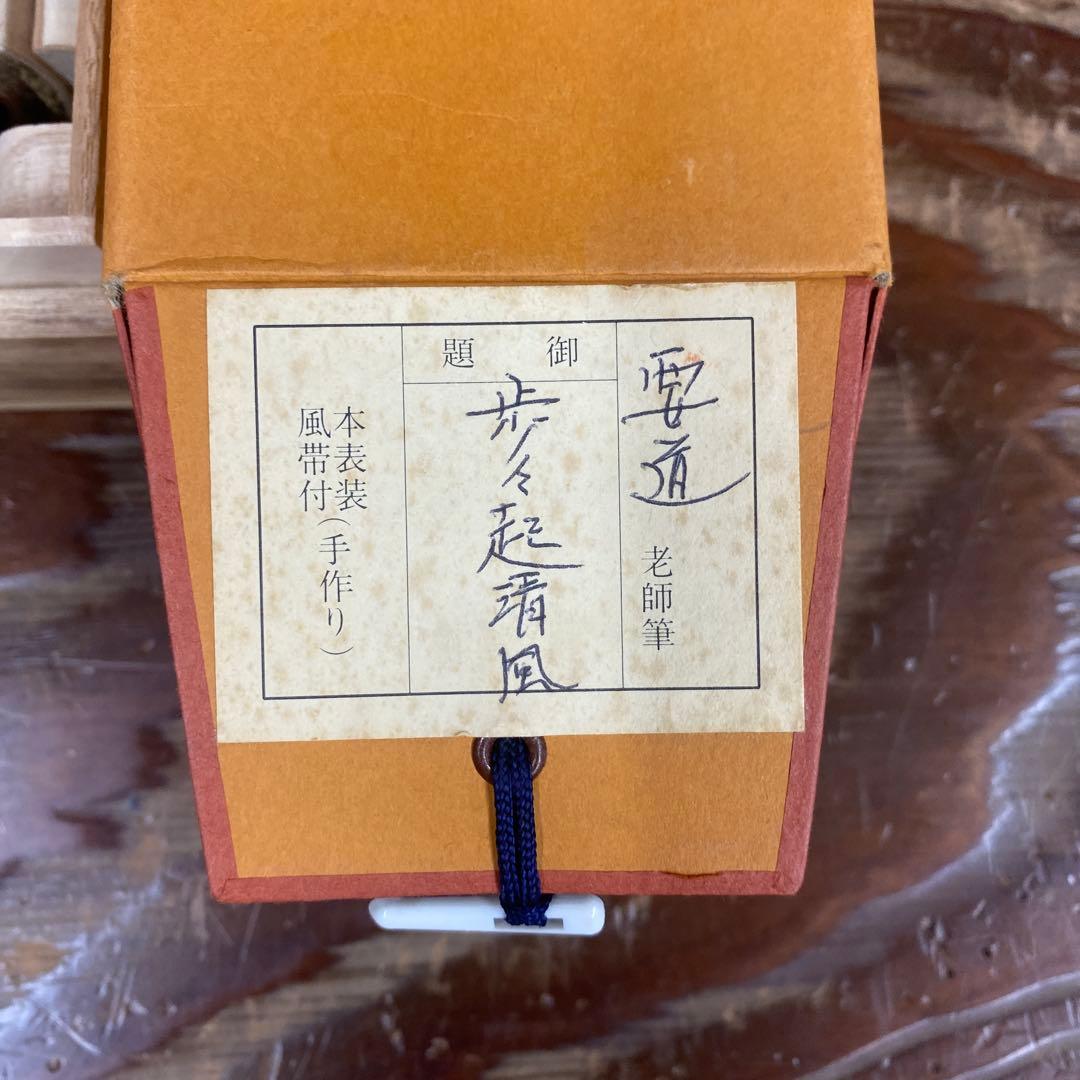 要道 老師筆
御題
歩々起清風
本表装
風帯付(手作り)